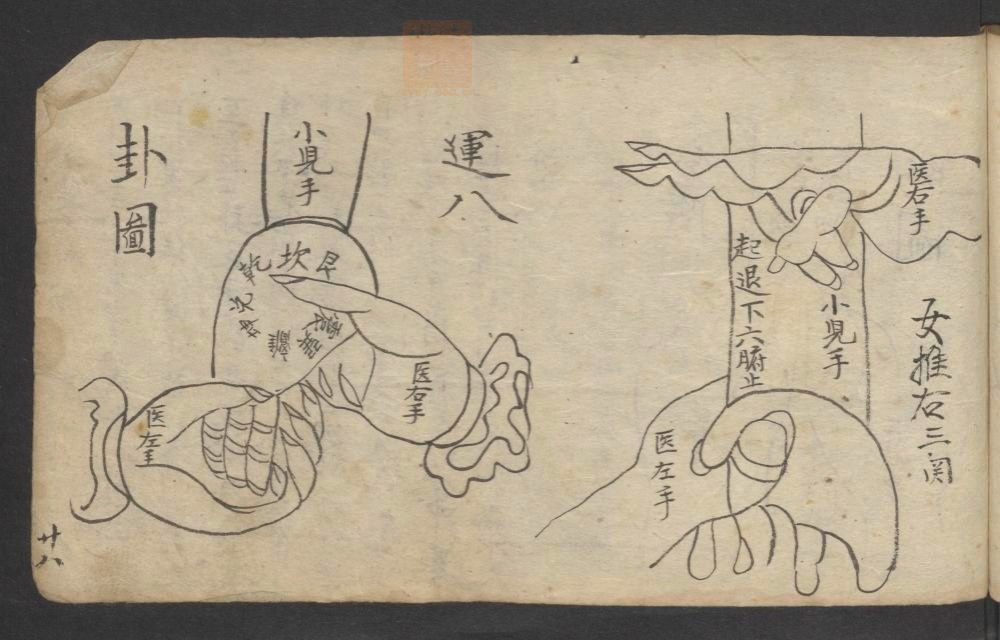 女推右三関
医右手
小児手
起退下六腑止
医左手
運八
小児手
坎
乾
艮
兌
坤
離
巽
震
医右手
医左手
卦圖
廿八